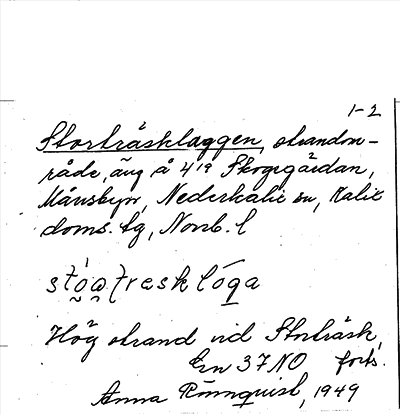 1-2
Storträsklaggen, strandom-
råde, äng å 4¹⁹ Skogsgärdan,
Månsbyn, Nederkalix sn, Kalix
doms. tg, Norrb. l
Hög strand vid Storträsk,
Ern 37 NO forts.
Anna Rönnquist, 1949